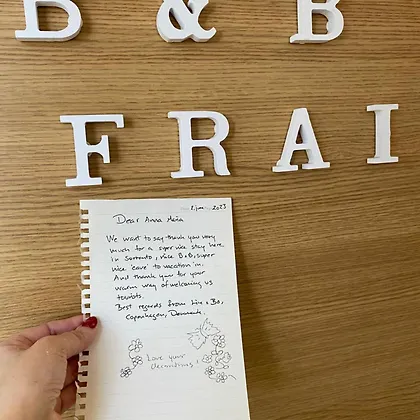 B & B
FRAI
2. june 2023
Dear Anna Maria
We want to say thank you very
much for a super nice stay here
in Sorrento, nice B&B, super
nice 'cave' to vacation in.
And thank you for your
warm way of welcoming us
tourists.
Best regards from Line & Bo,
Copenhagen, Denmark.
Love your
decorations!